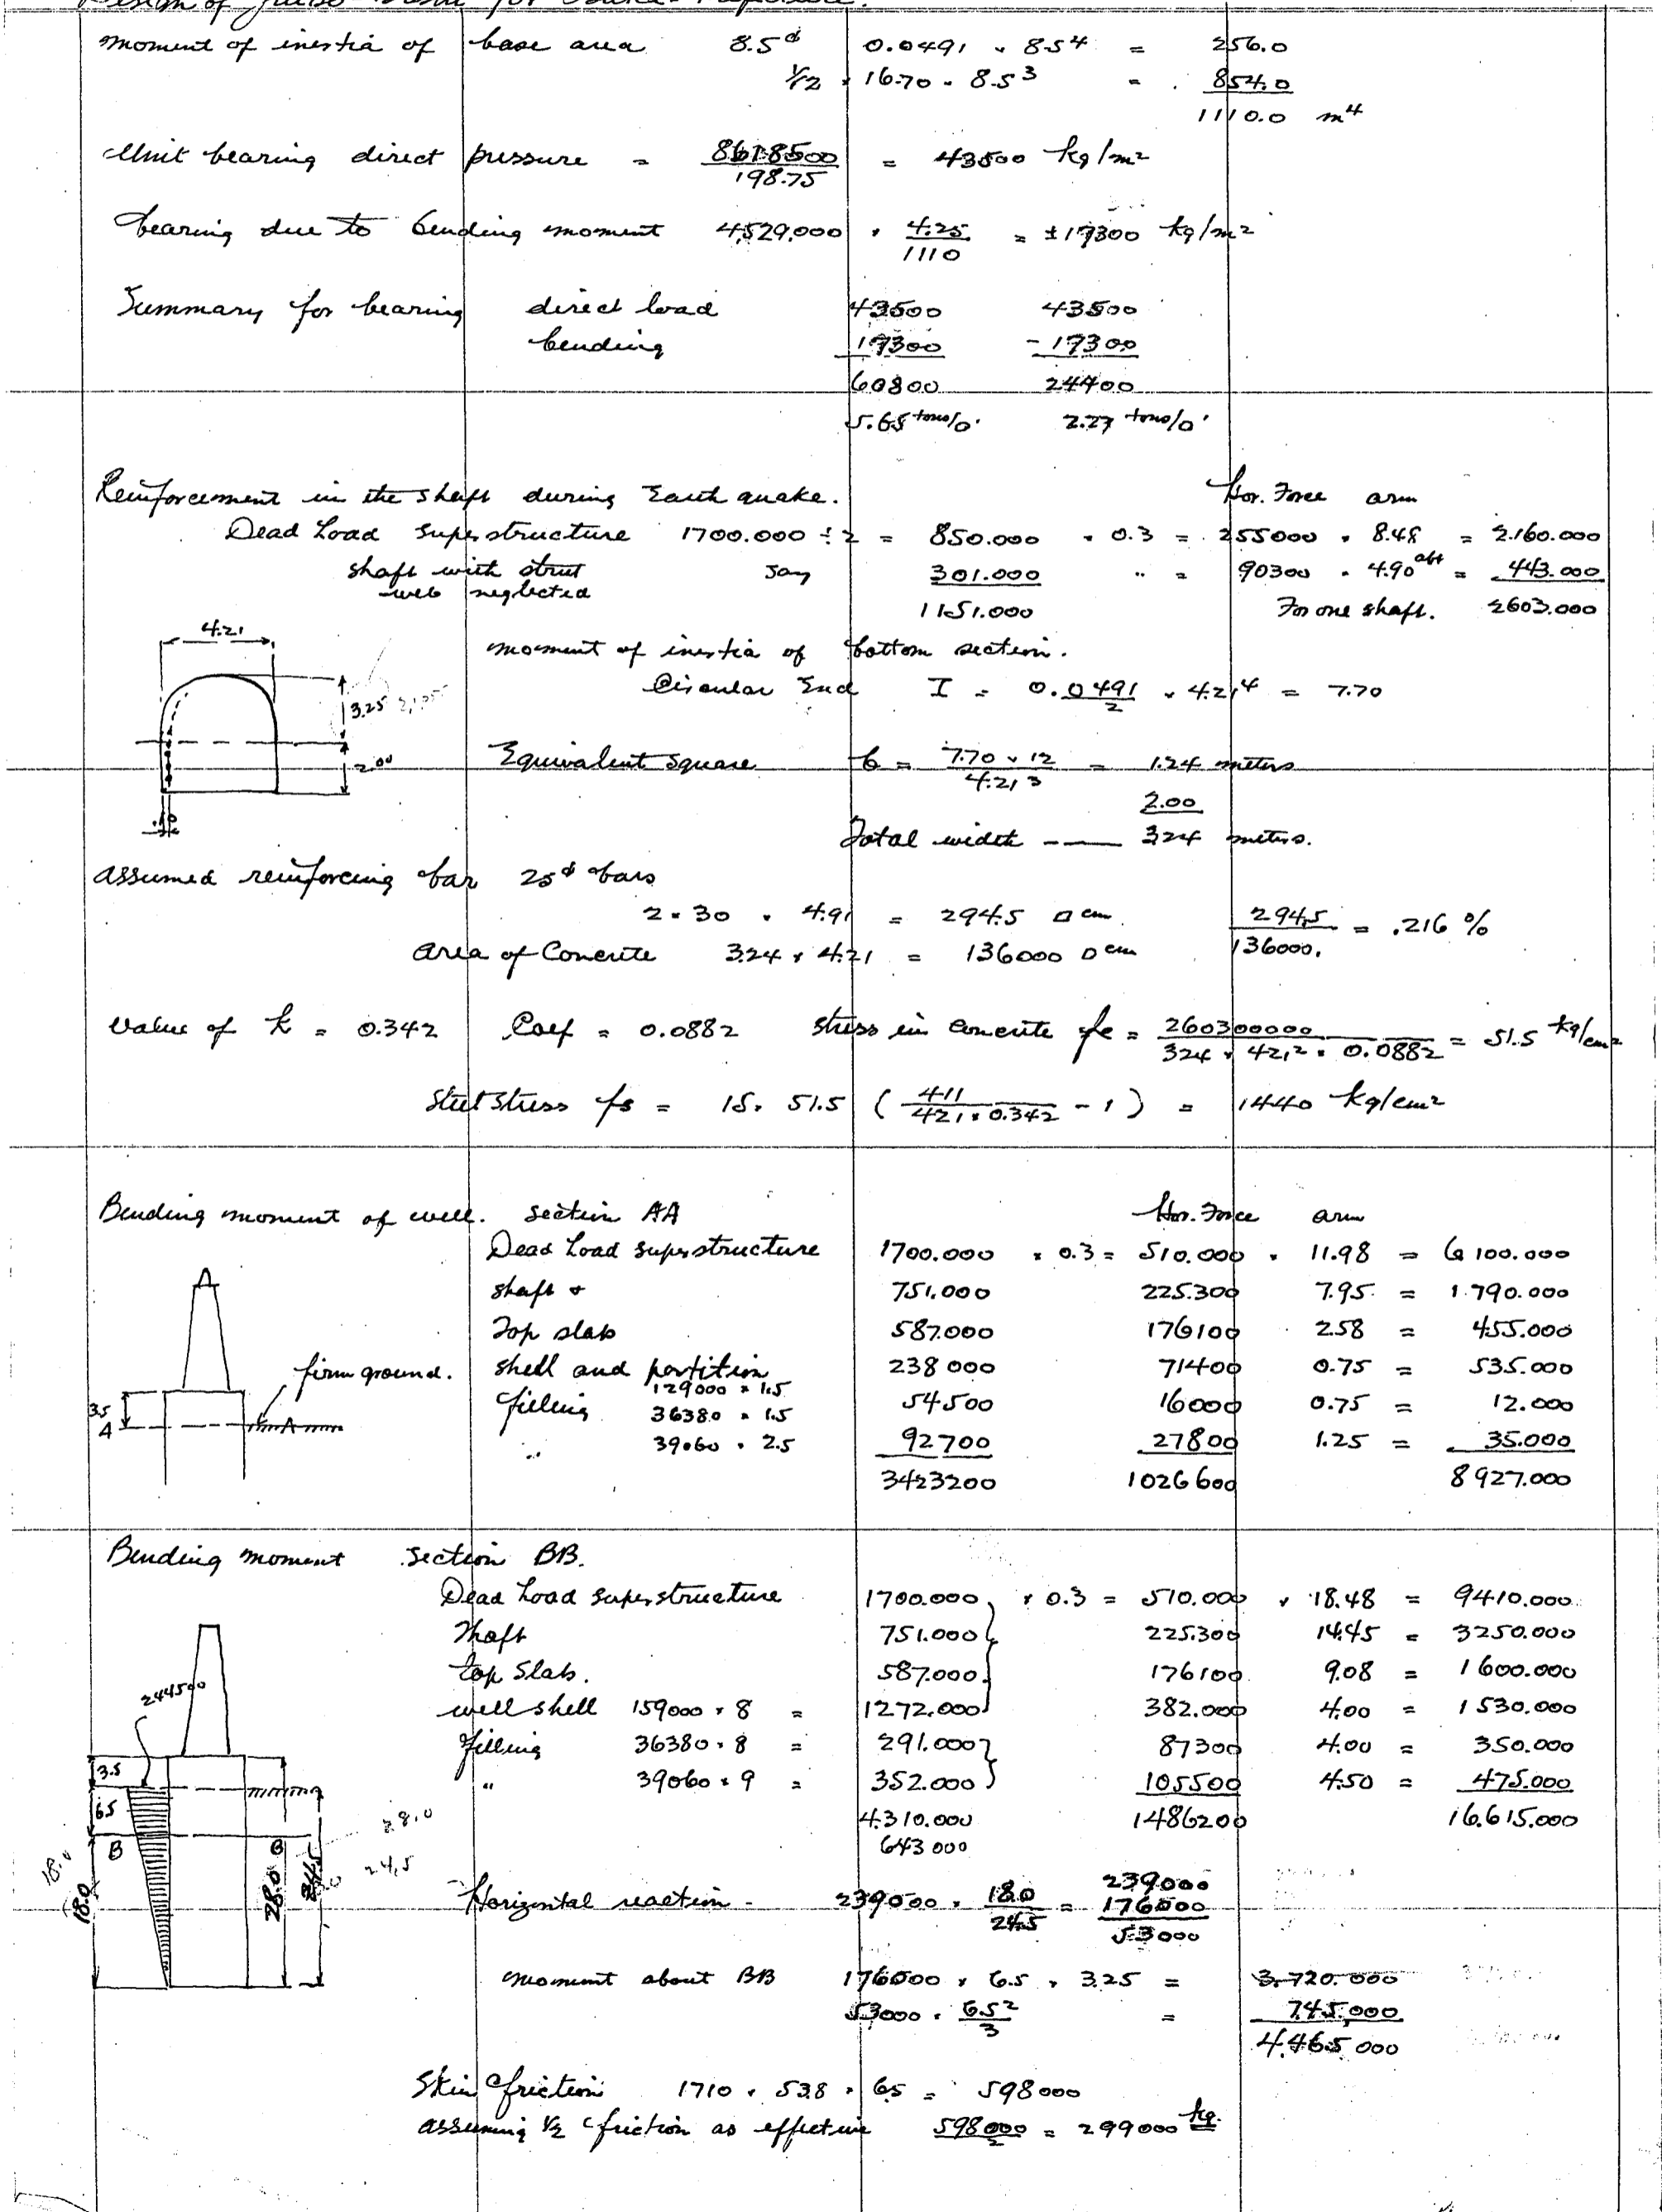 Design of for
moment of inertia of base area 8.5ᵈ 0.0491 × 8.5⁴ = 256.0
1/12 × 16.70 × 8.5³ = 854.0
1110.0 m⁴
Unit bearing direct pressure = 8618500 / 198.75 = 43500 kg/m²
bearing due to bending moment 4,529,000 × 4.25 / 1110 = ±17300 kg/m²
Summary for bearing direct load 43500 43500
bending 17300 - 17300
60800 24400
5.65 tons/□' 2.27 tons/□'
Reinforcement in the shaft during Earthquake. Hor. Force arm
Dead Load superstructure 1700.000 ÷ 2 = 850.000 × 0.3 = 255000 × 8.48 = 2.160.000
shaft with strut say 301.000 " = 90300 × 4.90 abt = 443.000
web neglected 1151.000 For one shaft. 2603.000
4.21
moment of inertia of bottom section.
Circular End I = 0.0491 / 2 × 4.21⁴ = 7.70
3.25
2.00
Equivalent square b = 7.70 × 12 / 4.21³ = 1.24 meters
2.00
Total width --- 3.24 meters.
assumed reinforcing bar 25ᵈ bars
2 × 30 × 4.91 = 294.5 □ cm 294.5 / 136000. = .216 %
area of Concrete 3.24 × 4.21 = 136000 □ cm
value of k = 0.342 Coef = 0.0882 stress in concrete fc = 260300000 / 324 × 421² × 0.0882 = 51.5 kg/cm²
Steel stress fs = 15 × 51.5 ( 411 / 421 × 0.342 - 1 ) = 1440 kg/cm²
Bending moment of well. section AA Hor. Force arm
Dead Load superstructure 1700.000 × 0.3 = 510.000 × 11.98 = 6100.000
A
shaft & 751.000 225.300 7.95 = 1.790.000
Top slab 587.000 176100 2.58 = 455.000
firm ground. shell and partition 238000 71400 0.75 = 535.000
129000 × 1.5
3.5
filling 36380 × 1.5 54.500 16000 0.75 = 12.000
A A
" 39060 × 2.5 92700 27800 1.25 = 35.000
3423200 1026600 8927.000
Bending moment section BB.
Dead Load superstructure 1700.000 × 0.3 = 510.000 × 18.48 = 9410.000
shaft 751.000 225.300 14.45 = 3250.000
top slab. 587.000 176100 9.08 = 1600.000
244500
well shell 159000 × 8 = 1272.000 382.000 4.00 = 1530.000
filling 36380 × 8 = 291.000 87300 4.00 = 350.000
3.5
" 39060 × 9 = 352.000 105500 4.50 = 475.000
6.5
4.310.000 1486200 16.615.000
28.0
B B
643000
24.5
18.0
18.0 28.0 24.5
Horizontal reaction - 239000 × 18.0 / 24.5 = 239000
176000
53000
moment about BB 176000 × 6.5 × 3.25 = 3.720.000
53000 × 6.5² / 3 = 745.000
4.465.000
Skin friction 1710 × 53.8 × 6.5 = 598000
assuming ½ friction as effective 598000 / 2 = 299000 kg.